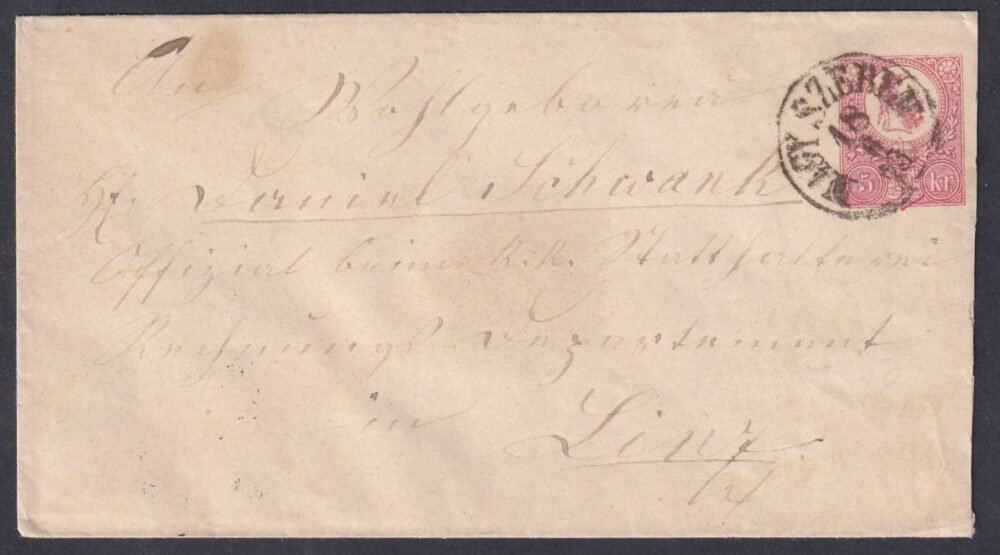 An
Wohlgeboren
H. Daniel Schwank
Offizial beim k. k. Statthalterei
Rechnungs Departement
in Linz
NAGY SZEBEN
5 kr